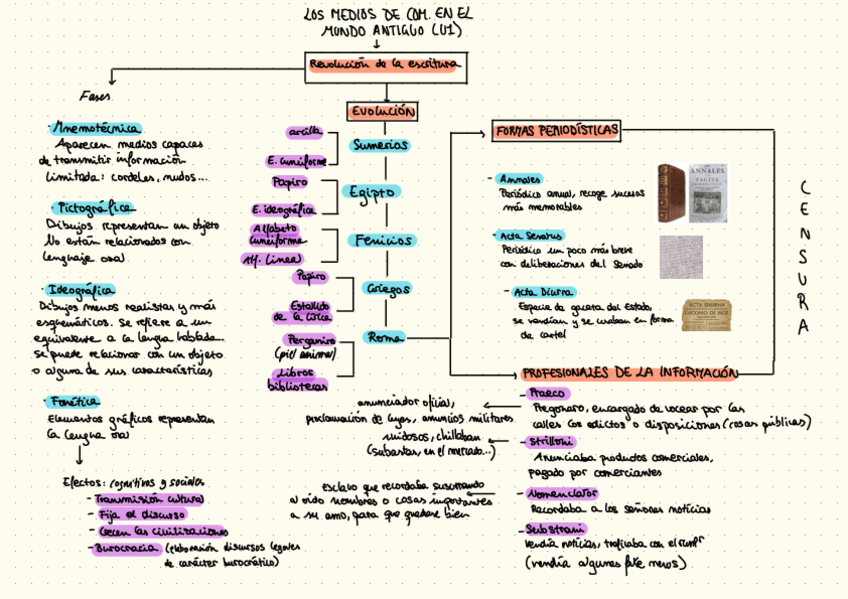 LOS MEDIOS DE COM. EN EL
MUNDO ANTIGUO (U1)
Revolución de la escritura
Fases
· Mnemotécnica
Aparecen medios capaces
de transmitir información
limitada: cordeles, nudos...
· Pictográfica
Dibujos representan un objeto
No están relacionados con
lenguaje oral
· Ideográfica
Dibujos menos realistas y más
esquemáticos. Se refiere a un
equivalente a la lengua hablada
se puede relacionar con un objeto
o alguna de sus características
· Fonética
Elementos gráficos representan
la lengua oral
Efectos: cognitivos y sociales
- Transmisión cultural
- Fija el discurso
- Crecen las civilizaciones
- Burocracia (elaboración discursos legales
de carácter burocrático)
EVOLUCIÓN
arcilla
Sumerios
E. cuneiforme
Papiro
Egipto
E. ideográfica
Alfabeto
cuneiforme
Fenicios
Alf. Lineal
Papiro
Griegos
Estallido
de la lírica
Roma
Pergamino
(piel animal)
Libros
bibliotecas
FORMAS PERIODÍSTICAS
- Annales
Periódico anual, recoge sucesos
más memorables
ANNALES
TACITE
- Acta Senatus
Periódico un poco más breve
con deliberaciones del Senado
- Acta Diurna
Especie de gaceta del Estado,
se vendían y se usaban en forma
de cartel
ACTA DIURNA
CENSURA
PROFESIONALES DE LA INFORMACIÓN
- Praeco
Pregonero, encargado de vocear por las
calles los edictos o disposiciones (cosas públicas)
anunciador oficial,
proclamación de leyes, anuncios militares
- Strilloni
Anunciaba productos comerciales,
pagado por comerciantes
ruidosos, chillaban
(subastas, en el mercado...)
- Nomenclator
Recordaba a los señores noticias
Esclavo que recordaba susurrando
al oído nombres o cosas importantes
a su amo, para que quedase bien
- Substrani
Vendía noticias, traficaba con el
(vendía algunas fake news)